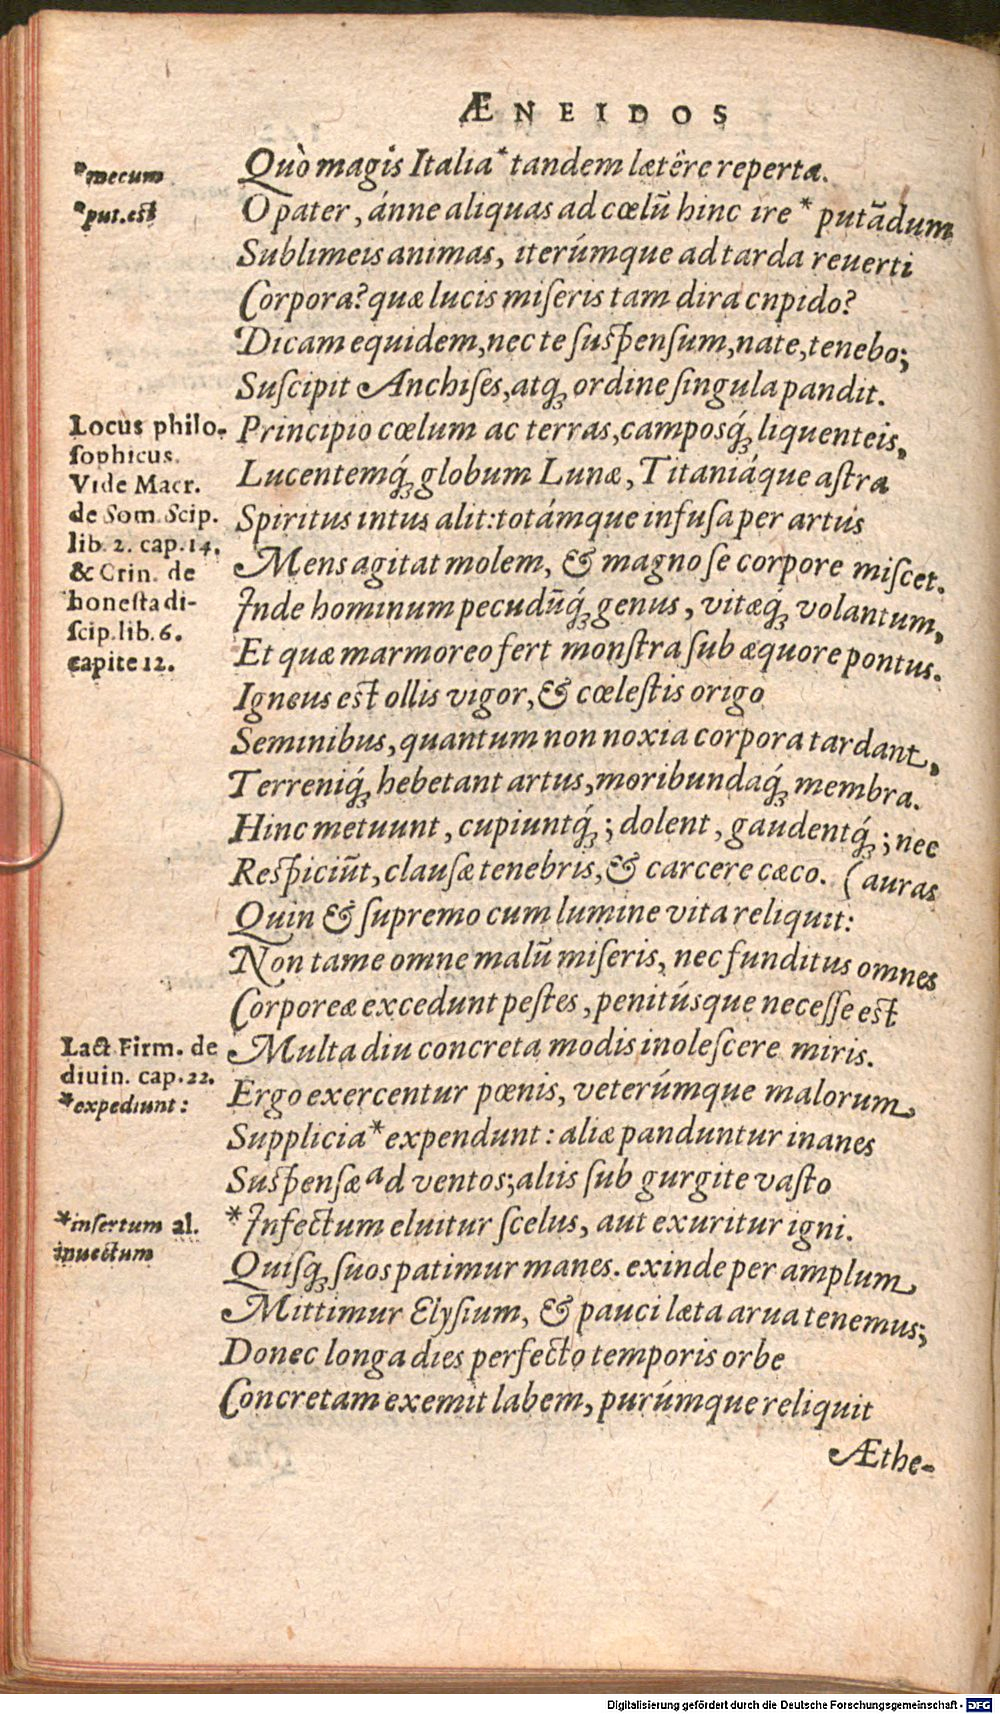 ÆNEIDOS
*mecum
*put.est
Quò magis Italia* tandem lætêre reperta.
O pater, ánne aliquas ad cœlũ hinc ire * putãdum
Sublimeis animas, iterúmque ad tarda reuerti
Corpora? quæ lucis miſeris tam dira cnpido?
Dicam equidem, nec te ſuſpenſum, nate, tenebo;
Suſcipit Anchiſes, atq; ordine ſingula pandit.
Locus philo-
ſophicus.
Vide Macr.
de Som. Scip.
lib. 2. cap. 14.
& Crin. de
honeſta di-
ſcip. lib. 6.
capite 12.
Principio cœlum ac terras, camposq́; liquenteis,
Lucentemq́; globum Lunæ, Titaniáque aſtra
Spiritus intus alit: totámque infuſa per artus
Mens agitat molem, & magno ſe corpore miſcet.
Inde hominum pecudũq́; genus, vitæq́; volantum,
Et quæ marmoreo fert monſtra ſub æquore pontus.
Igneus eſt ollis vigor, & cœleſtis origo
Seminibus, quantum non noxia corpora tardant,
Terreniq́; hebetant artus, moribundaq́; membra.
Hinc metuunt, cupiuntq́; ; dolent, gaudentq́; ; nec
Reſpiciũt, clauſæ tenebris, & carcere cæco. (auras
Quin & ſupremo cum lumine vita reliquit:
Non tame omne malũ miſeris, nec funditus omnes
Corporeæ excedunt peſtes, penitúsque neceſſe eſt
Lact. Firm. de
diuin. cap. 22.
*expediunt:
Multa diu concreta modis inoleſcere miris.
Ergo exercentur pœnis, veterúmque malorum
Supplicia* expendunt: aliæ panduntur inanes
Suſpenſæ ad ventos; aliis ſub gurgite vaſto
*inſertum al.
inuectum
*Infectum eluitur ſcelus, aut exuritur igni.
Quiſq; ſuos patimur manes. exinde per amplum
Mittimur Elyſium, & pauci læta arua tenemus;
Donec longa dies perfecto temporis orbe
Concretam exemit labem, purúmque reliquit
Æthe-
Digitalisierung gefördert durch die Deutsche Forschungsgemeinschaft - DFG